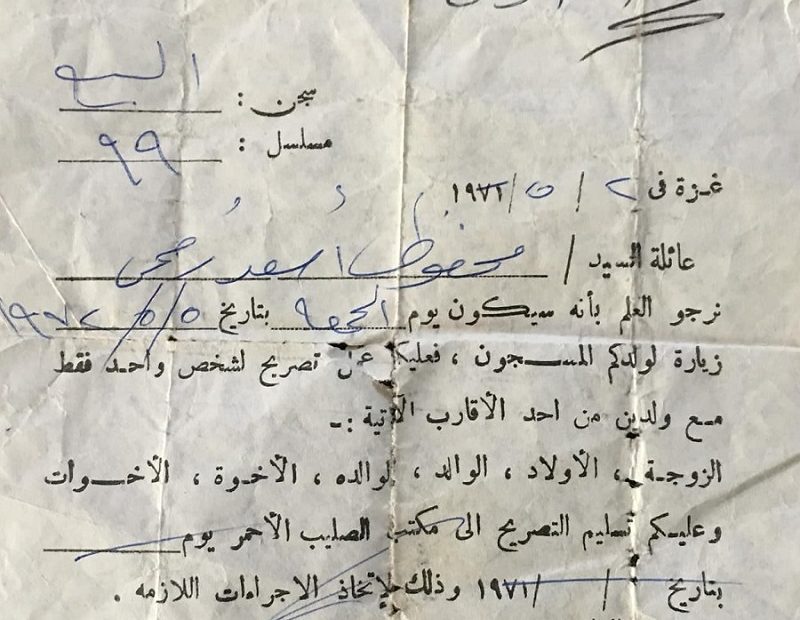 سجن : السبع
مسلسل : ٩٩
غزة فى ٢ / ٥ / ١٩٧٢
عائلة السيد / محفوظ اسعد
نرجو العلم بأنه سيكون يوم الجمعة بتاريخ ٥/٥/١٩٧٢
زيارة لولدكم المسجون ، تصريح لشخص واحد فقط
مع ولدين من احد الأقارب الآتية :-
الزوجة ، الأولاد ، الوالد ، لوالده ، الأخوة ، الأخوات
وعليكم تسليم التصريح الى مكتب الصليب الأحمر يوم
بتاريخ / / ١٩٧١ وذلك لإتخاذ الاجراءات اللازمه .